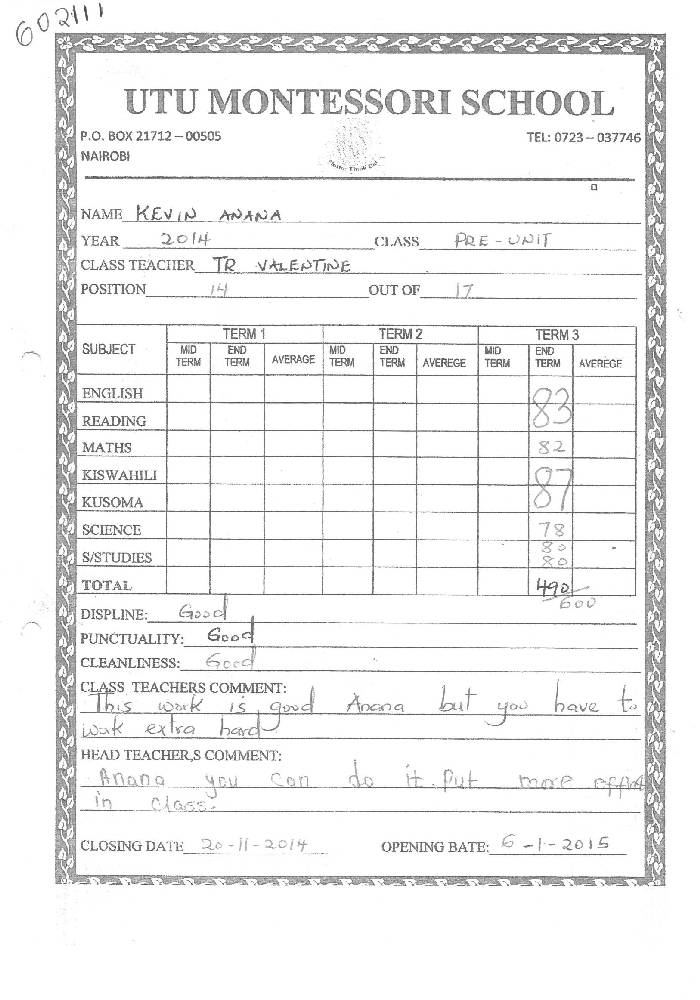 602111
UTU MONTESSORI SCHOOL
P.O. BOX 21712 – 00505 TEL: 0723 – 037746
NAIROBI
NAME KEVIN ANANA
YEAR 2014 CLASS PRE - UNIT
CLASS TEACHER TR VALENTINE
POSITION 14 OUT OF 17
SUBJECT TERM 1 TERM 2 TERM 3
MID TERM END TERM AVERAGE MID TERM END TERM AVEREGE MID TERM END TERM AVEREGE
ENGLISH
READING 83
MATHS 82
KISWAHILI
KUSOMA 87
SCIENCE 78
S/STUDIES 80 80
TOTAL 490/600
DISPLINE: Good
PUNCTUALITY: Good
CLEANLINESS: Good
CLASS TEACHERS COMMENT:
This work is good Anana but you have to
work extra hard
HEAD TEACHER,S COMMENT:
Anana you can do it. Put more effort
in class.
CLOSING DATE 20 - 11 - 2014 OPENING BATE: 6 - 1 - 2015